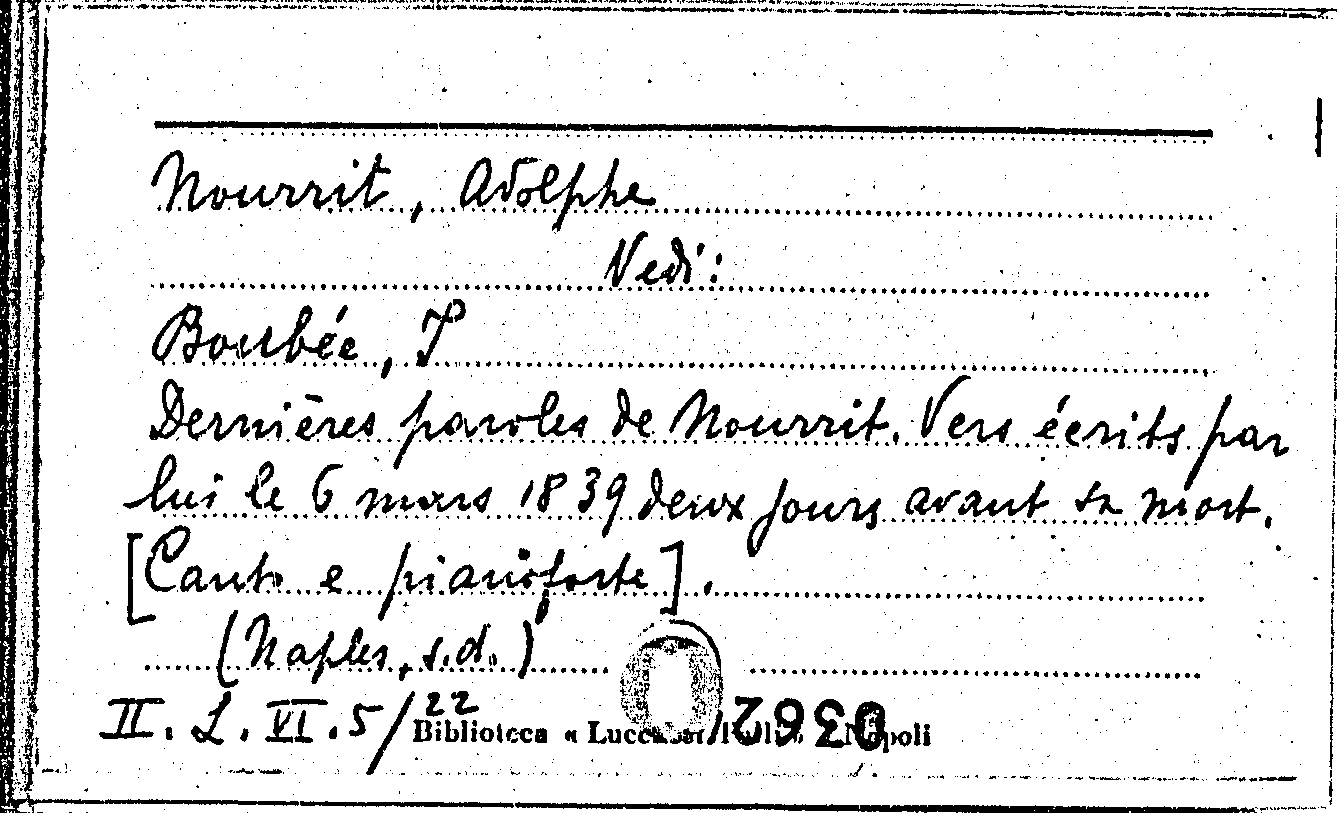 Nourrit, Adolphe
Vedi:
Boubée, J
Dernières paroles de Nourrit. Vers écrits par
lui le 6 mars 1839 deux jours avant sa mort.
[Canto e pianoforte].
(Naples, s.d.)
II. L. VI. 5/22
Biblioteca « Lucchesi Palli » Napoli
0362